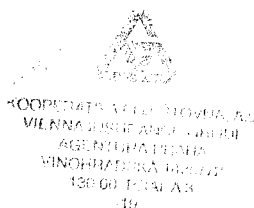 KOOPERATIVA POJIŠŤOVNA, A.S.
VIENNA INSURANCE GROUP
AGENTURA PRAHA
VINOHRADSKÁ
130 00 PRAHA 3
-19-